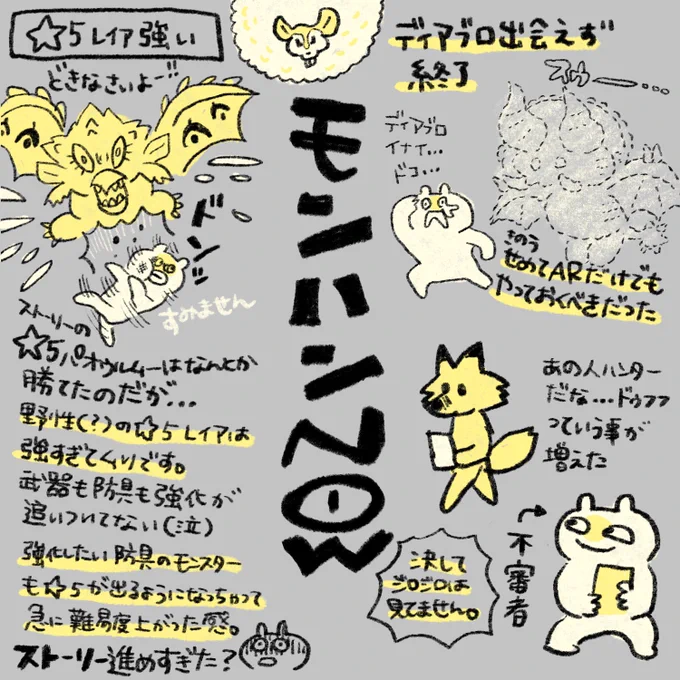 ☆5レイア強い
どきなさいよー!!
ドンッ
すみません
ストーリーの
☆5パオウルムーはなんとか
勝てたのだが…
野性(?)の☆5レイアは
強すぎてムリです。
武器も防具も強化が
追いついてない(泣)
強化したい防具のモンスター
も☆5が出るようになっちゃって
急に難易度上がった感。
ストーリー進めすぎた?
モンハンNOW
ディアブロ出会えず
終了
スゥー…
ディアブロ
イナイ…
ドコ…
きのう
せめてARだけでも
やっておくべきだった
あの人ハンター
だな…ドゥフフ
っていう事が
増えた
不審者
決して
ジロジロは
見てません。